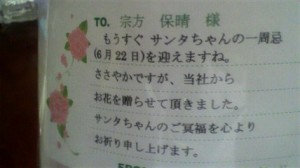 TO. 宗方 保晴 様
もうすぐ サンタちゃんの一周忌
(6月22日)を迎えますね。
ささやかですが、当社から
お花を贈らせて頂きました。
サンタちゃんのご冥福を心より
お祈り申し上げます。